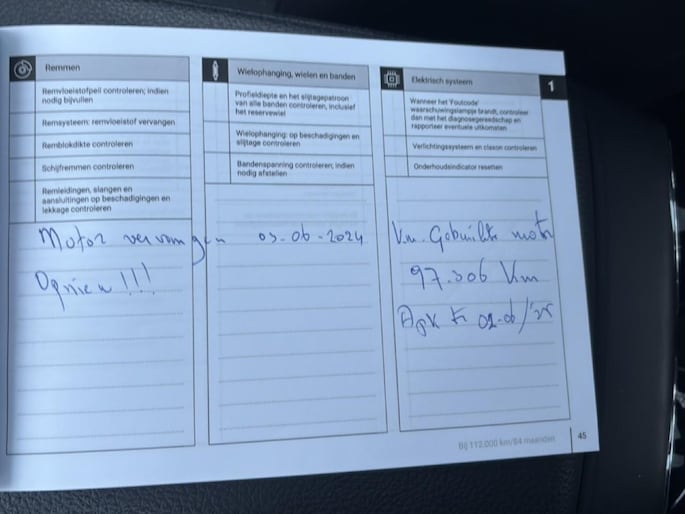 Remmen
Remvloeistofpeil controleren; indien
nodig bijvullen
Remsysteem: remvloeistof vervangen
Remblokdikte controleren
Schijfremmen controleren
Remleidingen, slangen en
aansluitingen op beschadigingen en
lekkage controleren
Wielophanging, wielen en banden
Profieldiepte en het slijtagepatroon
van alle banden controleren, inclusief
het reservewiel
Wielophanging: op beschadigingen en
slijtage controleren
Bandenspanning controleren; indien
nodig afstellen
Elektrisch systeem
Wanneer het 'Foutcode'
waarschuwingslampje brandt, controleer
dan met het diagnosegereedschap en
rapporteer eventuele uitkomsten
Verlichtingssysteem en claxon controleren
Onderhoudsindicator resetten
1
Motor vervangen 03-06-2024 Km. Gebruikte motor
Opnieuw!!! 97.306 Km
Apk
Bij 112.000 km/84 maanden
45